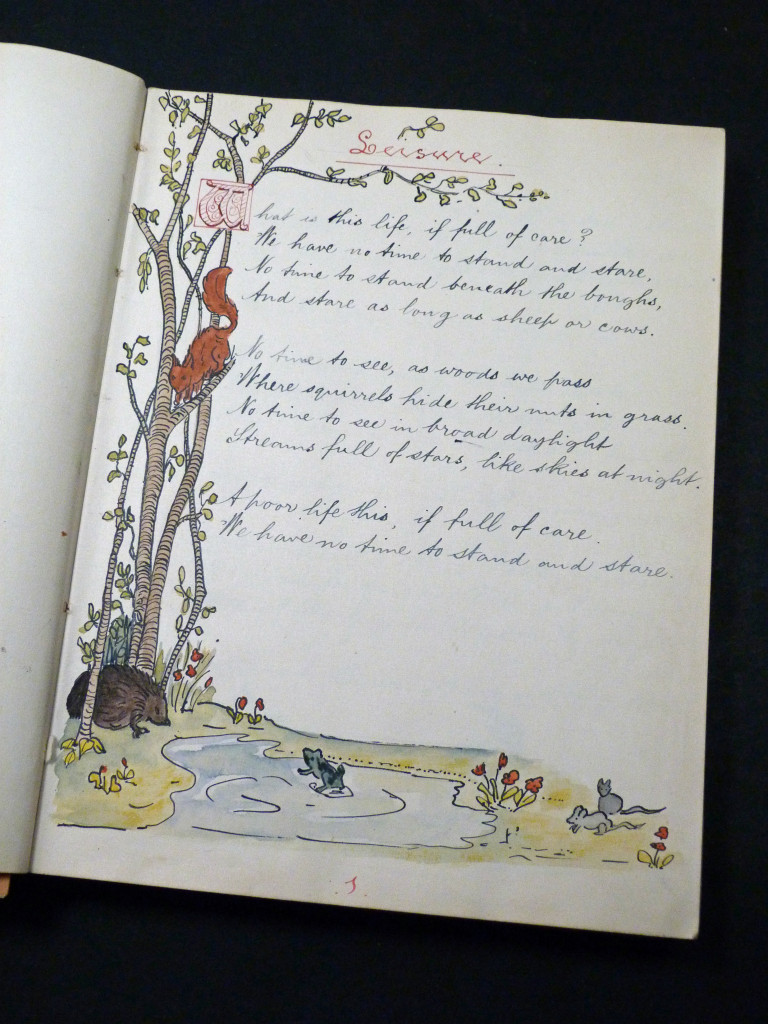 Leisure.
What is this life, if full of care?
We have no time to stand and stare,
No time to stand beneath the boughs,
And stare as long as sheep or cows.
No time to see, as woods we pass
Where squirrels hide their nuts in grass.
No time to see in broad daylight
Streams full of stars, like skies at night.
A poor life this, if full of care.
We have no time to stand and stare.
1.